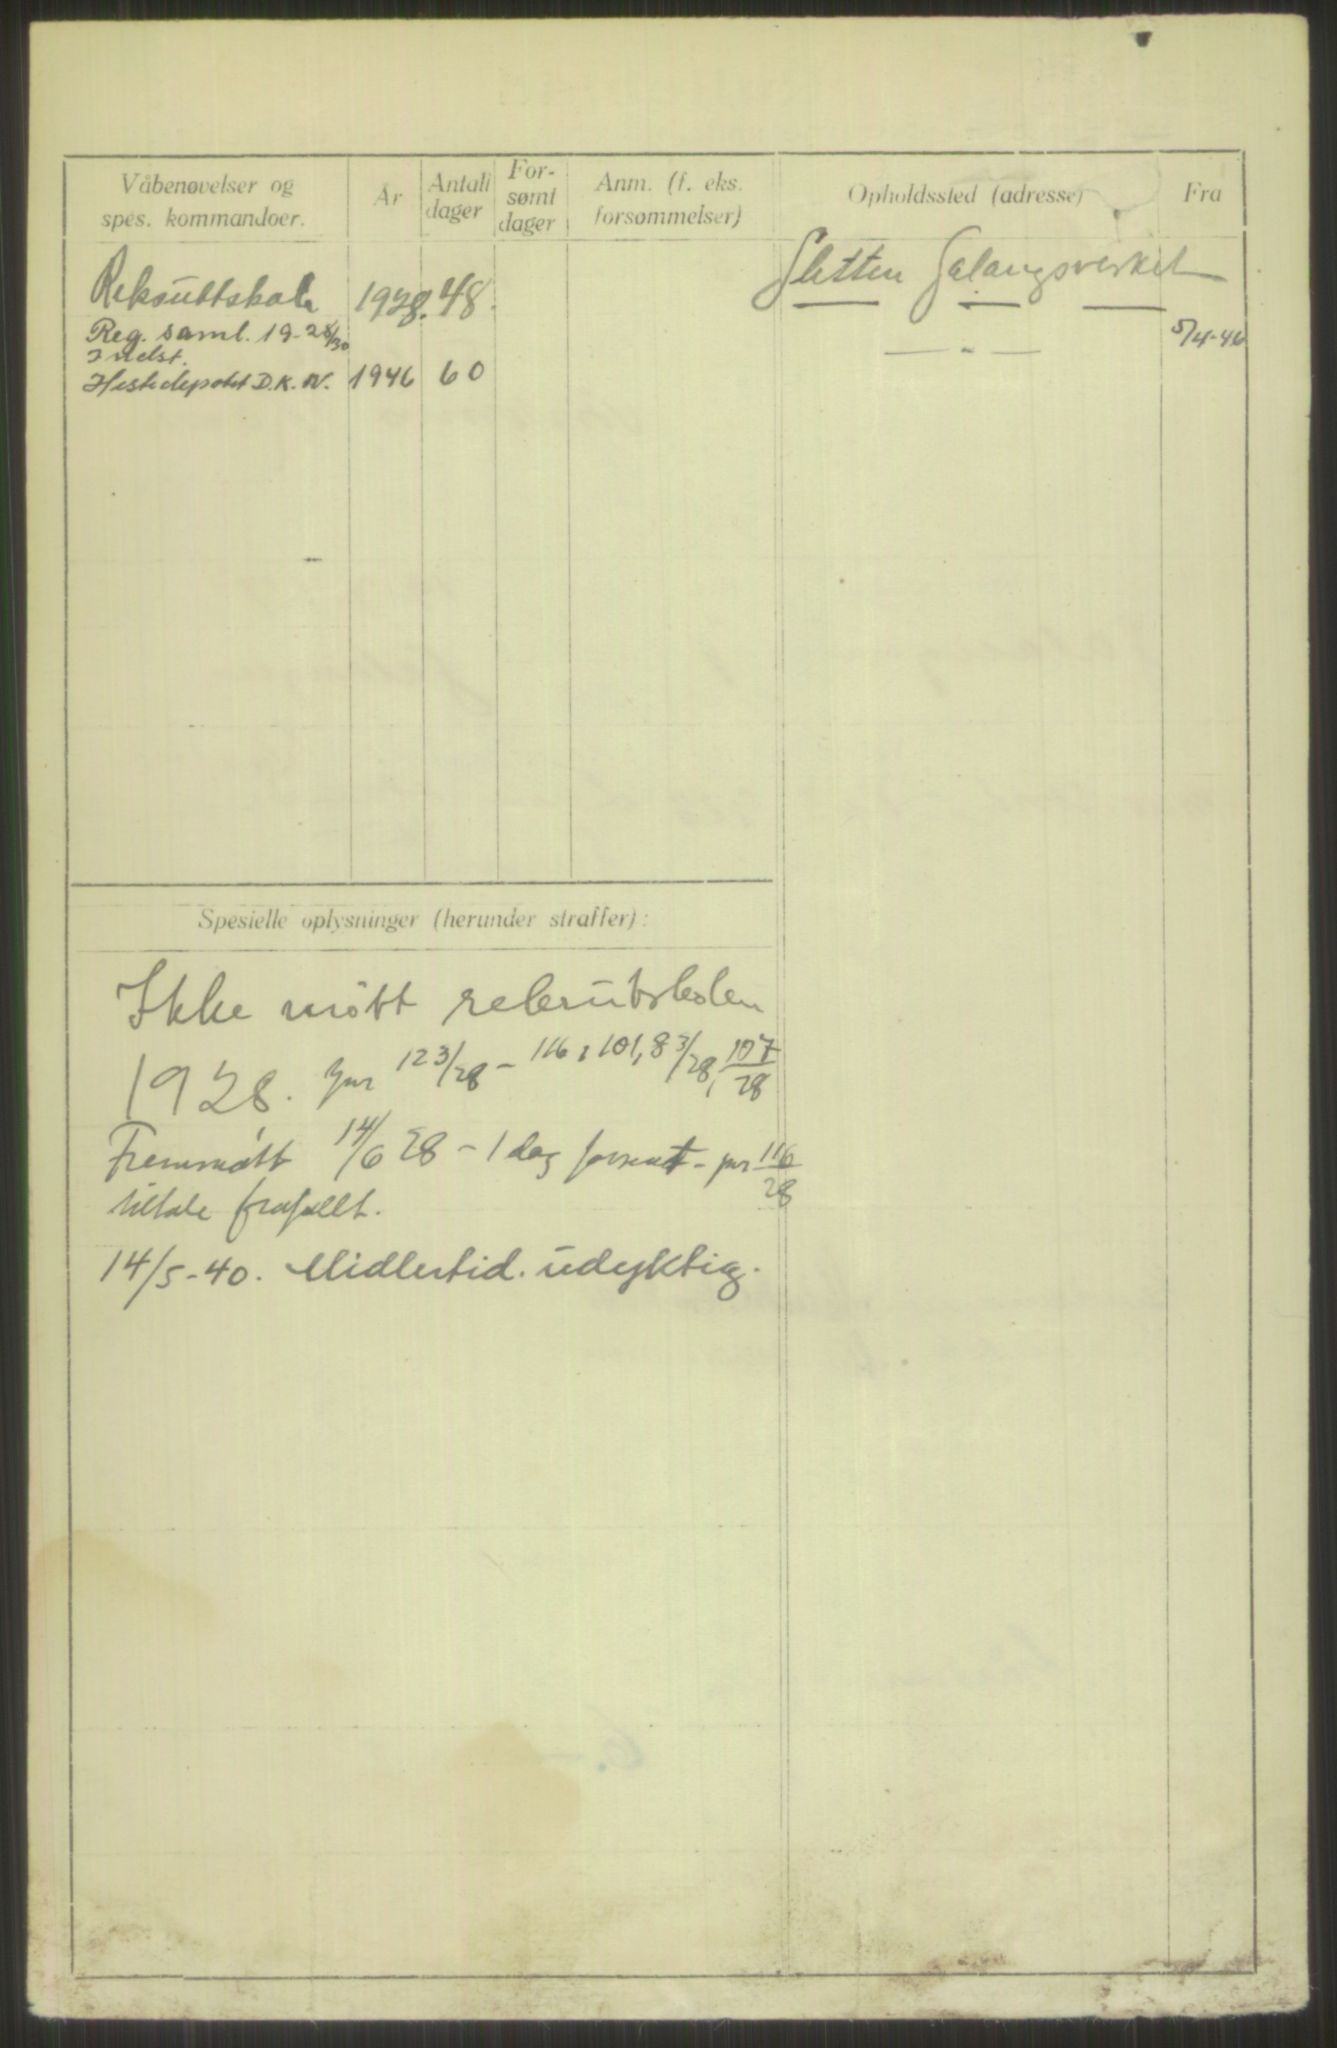 Våbenøvelser og spes. kommandoer. År Antall dager For- sømt dager Anm. (f. eks. forsømmelser) Opholdssted (adresse) Fra
Rekruttskole 1928. 48. Sletten Salangsverket
Reg. saml. 19-28/30 — " — 5/4-46
Indst.
Hestedepotet D.K.N. 1946 60
Spesielle oplysninger (herunder straffer):
Ikke møtt rekrutskolen
1928. jnr 123/28 - 116, 101, 83/28, 107/28
Fremmøtt 14/6 28 - 1 dag forsent - jnr 116/28
tiltale frafallt.
14/5-40. Midlertid. udyktig.